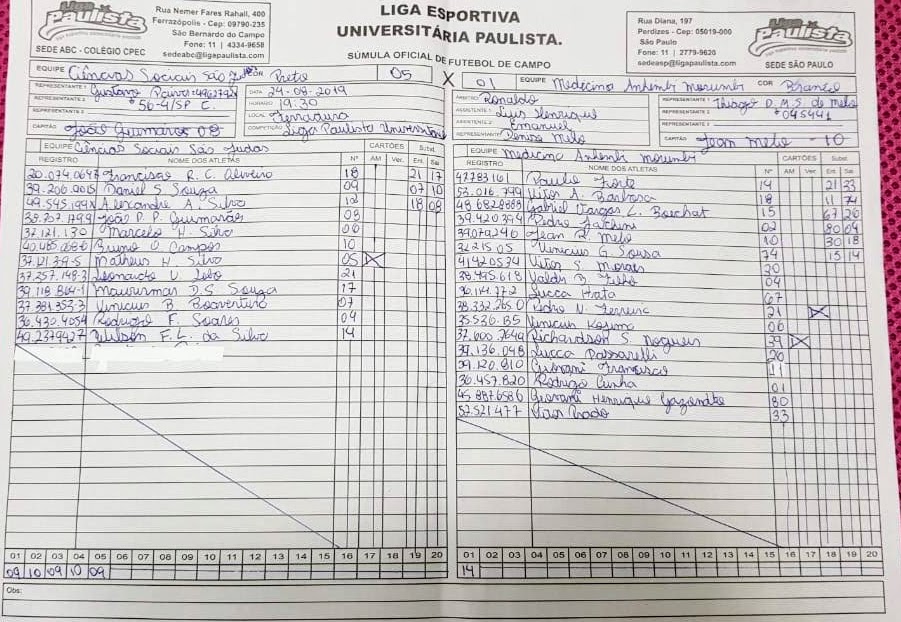 Liga Paulista
Rua Nemer Fares Rahall, 400
Ferrazópolis - Cep: 09790-235
São Bernardo do Campo
Fone: 11 | 4334-9658
sedeabc@ligapaulista.com
SEDE ABC - COLÉGIO CPEC
LIGA ESPORTIVA
UNIVERSITÁRIA PAULISTA.
SÚMULA OFICIAL DE FUTEBOL DE CAMPO
Rua Diana, 197
Perdizes - Cep: 05019-000
São Paulo
Fone: 11 | 2779-9620
sedesp@ligapaulista.com
Liga Paulista
SEDE SÃO PAULO
EQUIPE Ciências Sociais São Judas COR Preto 05 X 01 EQUIPE Medicina Anhembi Morumbi COR Branco
REPRESENTANTE 1 Gustavo Paiva
REPRESENTANTE 2 56-4/SP C.
REPRESENTANTE 3
CAPITÃO João Guimarães 08
DATA 24-08-2019
HORÁRIO 19:30
LOCAL Ferradura
COMPETIÇÃO Liga Paulista Universitária
ÁRBITRO Ronaldo
ASSISTENTE 1 Luis Henrique
ASSISTENTE 2 Emanuel
REPRESENTANTE Denise Melo
REPRESENTANTE 1 Thiago D. M. S. de Melo
REPRESENTANTE 2 045441
REPRESENTANTE 3
CAPITÃO Jean Melo - 10
EQUIPE Ciências Sociais São Judas CARTÕES Subst
REGISTRO NOME DOS ATLETAS Nº AM Ver. Ent Sai
Francisco R. C. Oliveira 18 21 17
39.206.901-5 Daniel S Souza 09 07 10
Alexandre A. Silva 18 08
João P. P. Guimarães 08
37.121.130 Marcelo H. Silva 06
Bruno O Campos 10
Matheus H Silva 05 X
37.257.148-3 Leonardo U. 21
39.118.864-1 D. S Souza 17
37.381.353-3 Vinicius B Boaventura 07
36.430.4054 Rodrigo F. Soares 04
49.2379427 F. L. da Silva 14
EQUIPE Medicina Anhembi Morumbi CARTÕES Subst
REGISTRO NOME DOS ATLETAS Nº AM Ver. Ent Sai
47783161 Paulo Forte 14 21 33
53.016.799 Vitor A. Barbosa 18 11 74
Gabriel Vargas L. Boechat 15 67 20
39.420.394 Pedro 02 80 04
39079240 Jean R. Melo 10 30 18
Vinicius G Sousa 74 15 14
41420534 Vitor S Morais 20
38.995.618 Valdir B. Filho 04
Lucca 67
Pedro N. Ferreira 21 X
Vinicius 06
Richardson S. Nogueira 39 X
39.136.048 Lucca Passarelli 20
39.120.810 Giovani Francisco 11
36.457.820 Rodrigo Cunha 01
Giovani Henrique 80
52521477 Vitor Prado 33
01 02 03 04 05 06 07 08 09 10 11 12 13 14 15 16 17 18 19 20
09 10 09 10 09
01 02 03 04 05 06 07 08 09 10 11 12 13 14 15 16 17 18 19 20
14
Obs: